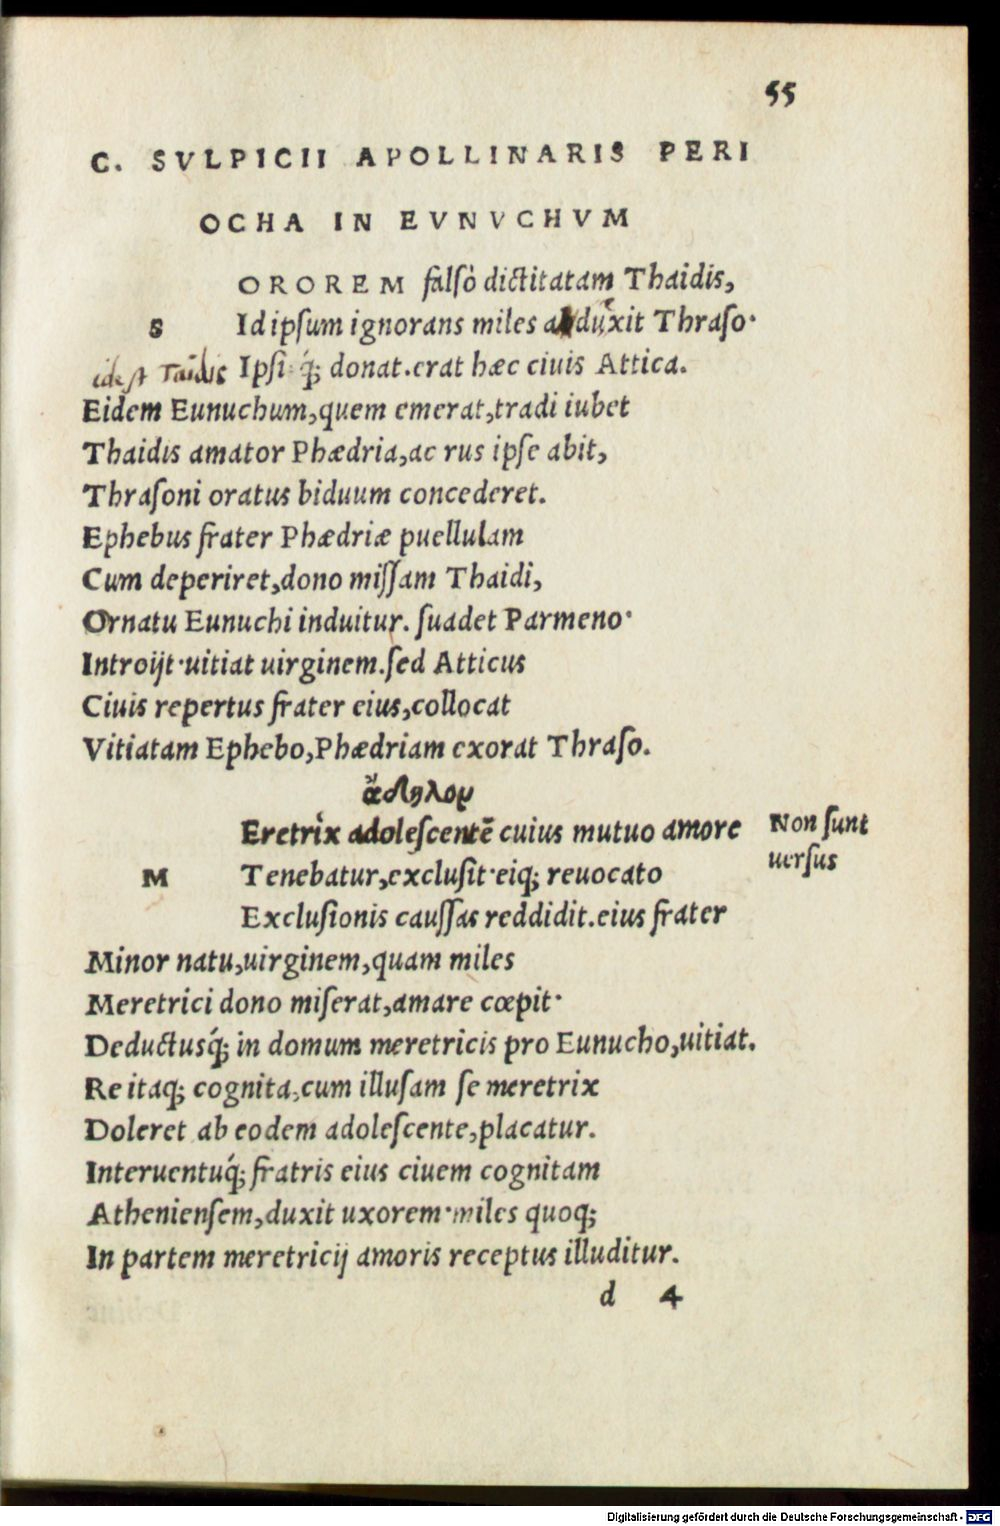 55
C. SVLPICII APOLLINARIS PERI
OCHA IN EVNVCHVM
S OROREM falsò dictitatam Thaidis,
Id ipsum ignorans miles adduxit Thraso·
idest Taidis
Ipsiq́; donat.erat hæc ciuis Attica.
Eidem Eunuchum,quem emerat,tradi iubet
Thaidis amator Phædria,ac rus ipse abit,
Thrasoni oratus biduum concederet.
Ephebus frater Phædriæ puellulam
Cum deperiret,dono missam Thaidi,
Ornatu Eunuchi induitur. suadet Parmeno·
Introijt·uitiat uirginem.sed Atticus
Ciuis repertus frater eius,collocat
Vitiatam Ephebo,Phædriam exorat Thraso.
ἄδηλον
M Eretrix adolescentē cuius mutuo amore
Non sunt
uersus
Tenebatur,exclusit·eiq; reuocato
Exclusionis caussas reddidit.eius frater
Minor natu,uirginem,quam miles
Meretrici dono miserat,amare cœpit·
Deductusq́; in domum meretricis pro Eunucho,uitiat.
Re itaq; cognita,cum illusam se meretrix
Doleret ab eodem adolescente,placatur.
Interuentuq́; fratris eius ciuem cognitam
Atheniensem,duxit uxorem·miles quoq;
In partem meretricij amoris receptus illuditur.
d 4
Digitalisierung gefördert durch die Deutsche Forschungsgemeinschaft - DFG